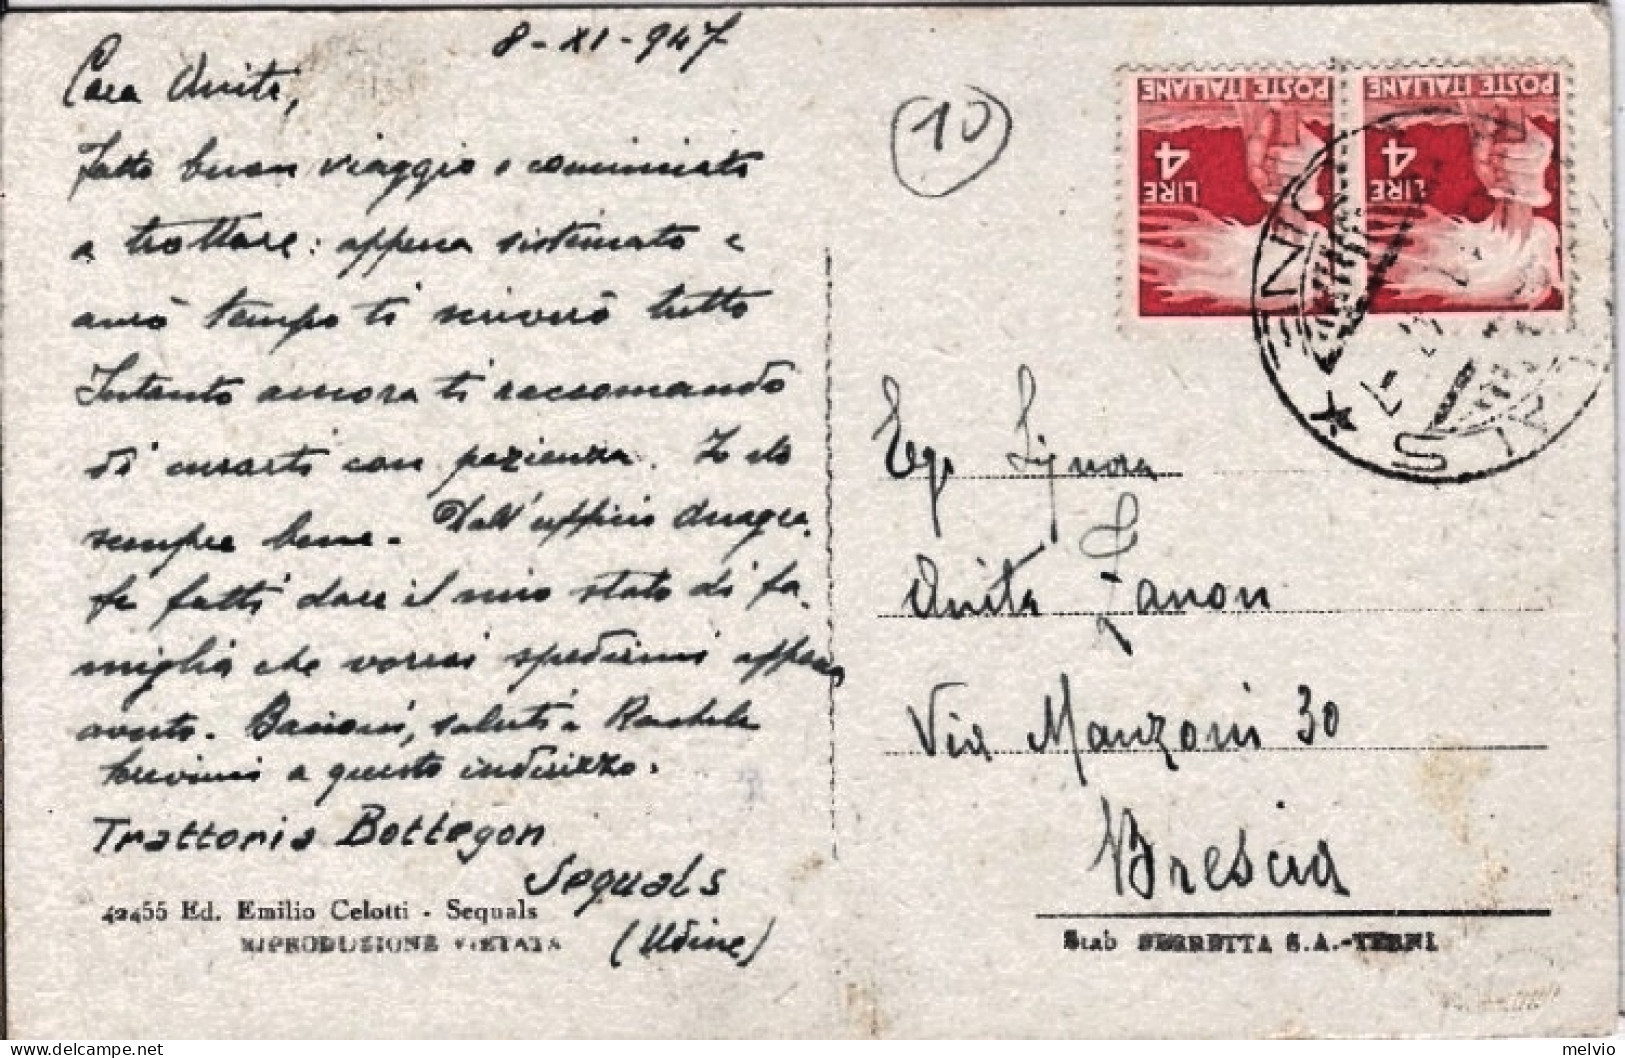 8-XI-947
Cara Anita,
Fatto buon viaggio e cominciato
a trottare: appena sistemato e
avrò tempo ti scriverò tutto
Intanto ancora ti raccomando
di curarti con pazienza. Io sto
sempre bene. Dall'ufficio Anagra.
fe fatti dare il mio stato di fa.
miglia che vorrai spedirmi appena
avuto. Bacioni, saluti a Rachele
scrivimi a questo indirizzo.
Trattoria Bottegon
Sequals
(Udine)
42455 Ed. Emilio Celotti - Sequals
RIPRODUZIONE VIETATA
10
POSTE ITALIANE
LIRE 4
POSTE ITALIANE
LIRE 4
Eg. Signora
Anita Zanon
Via Manzoni 30
Brescia
Stab SEGRETTA S.A.-TERNI
melvio